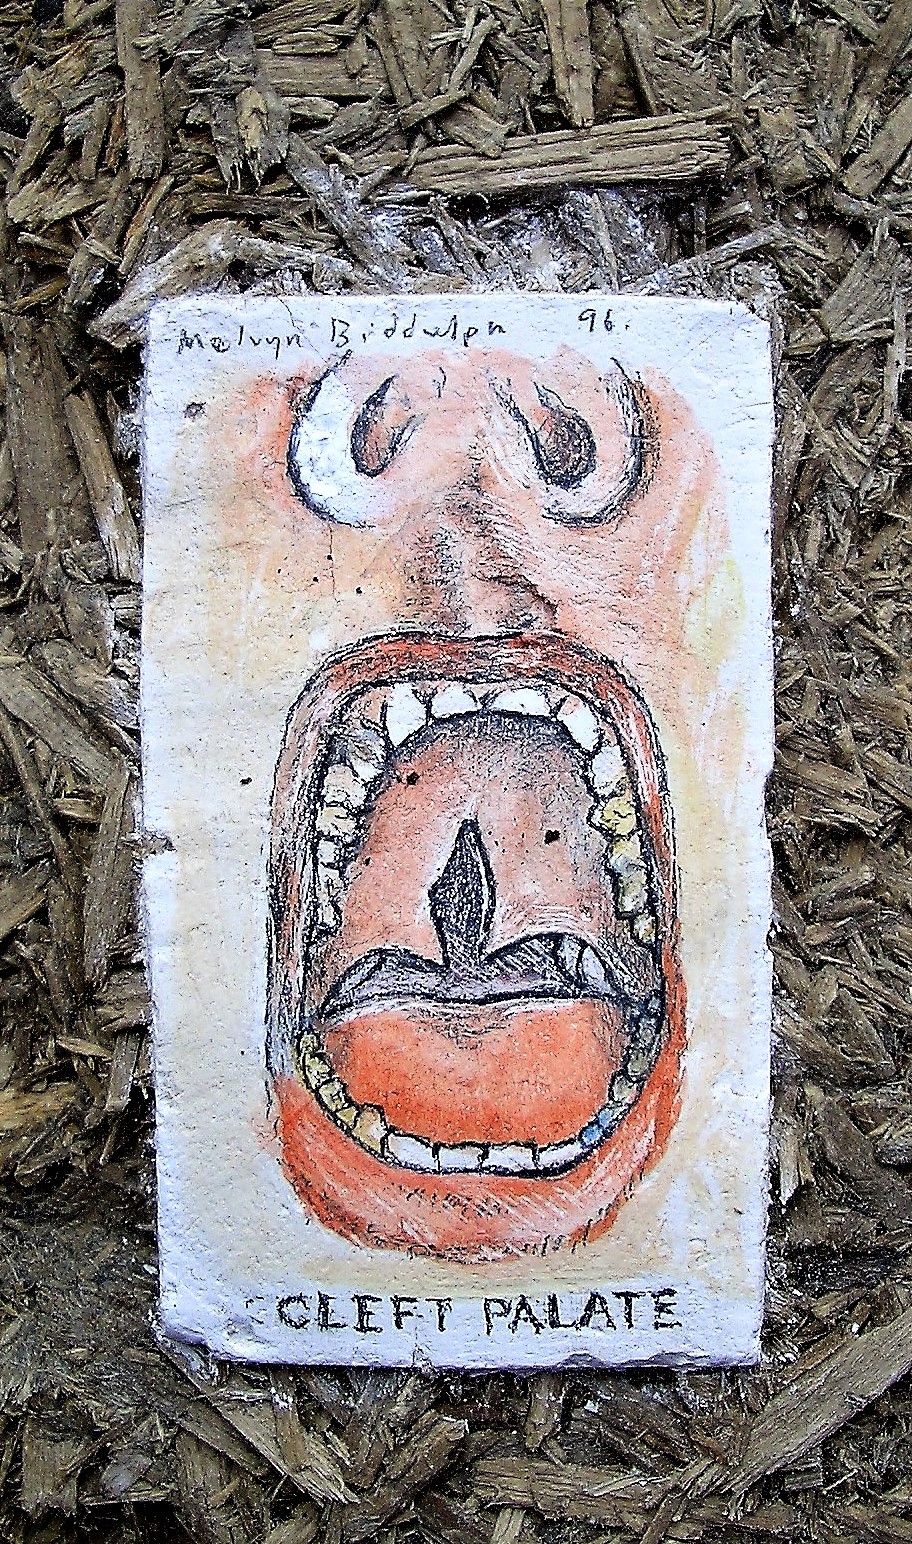 Melvyn Biddulph 96.
CLEFT PALATE